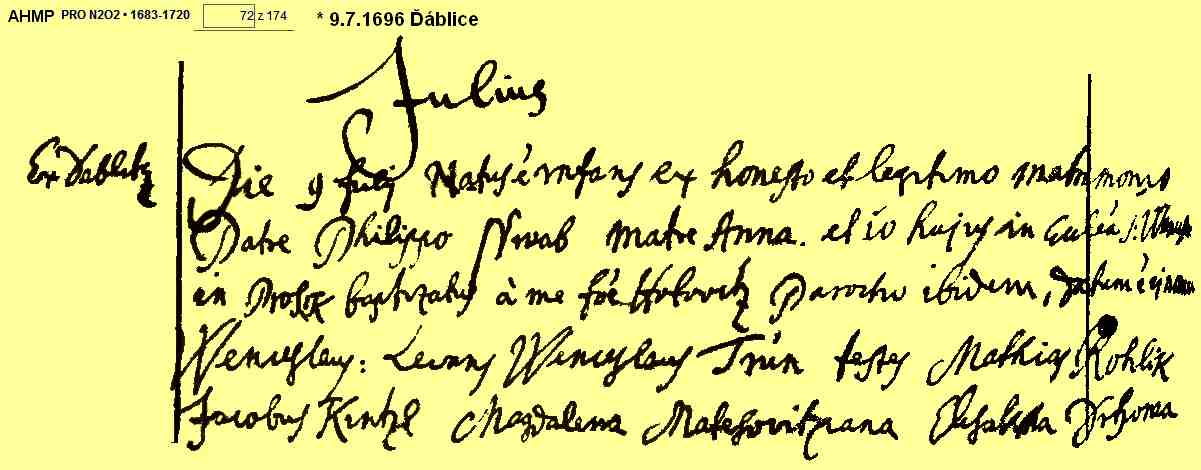 AHMP PRO N2O2 • 1683-1720 72 z 174 * 9.7.1696 Ďáblice
Julius
Ex Dablitz Die 9 Julij Natus é infans ex honesto et legitimo matrimonio
Patre Philippo Swab matre Anna. et 10 hujus in
in Prosek baptizatus à me Parocho ibidem,
Wenceslaus: Levans Wenceslaus Trún testes Mathias Rohlik
Jacobus Kintzl Magdalena